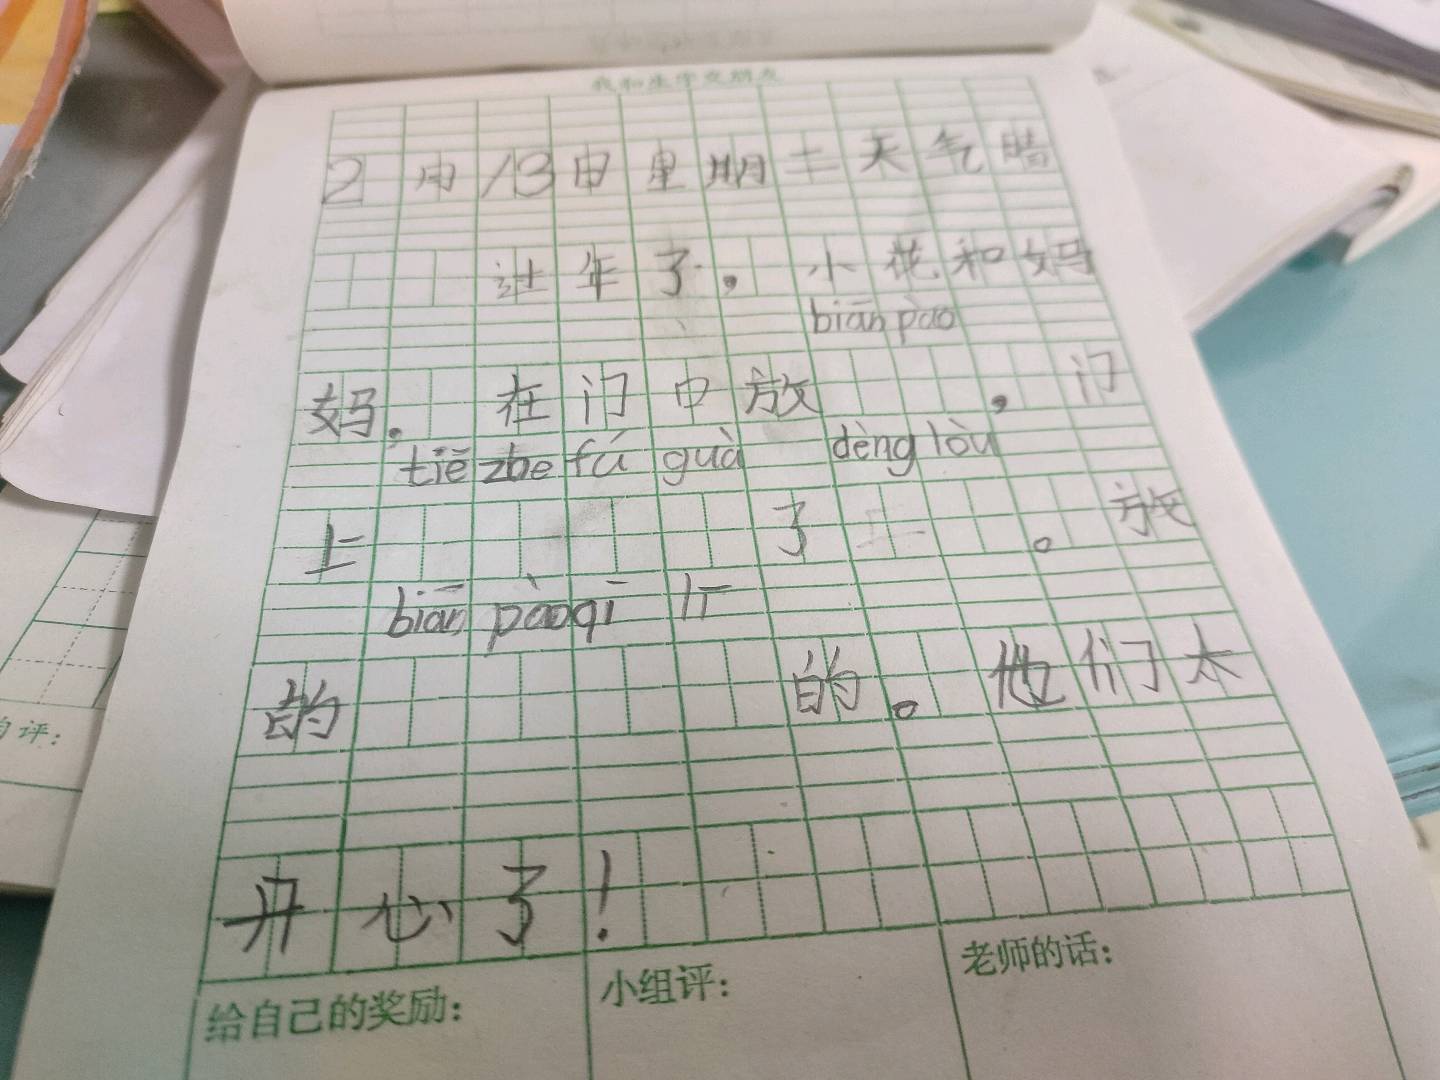 我和生字交朋友
2月13日星期二天气晴
过年了，小花和妈
biān pào
妈，在门中放，门
tiē zhe fú guà dēng lòu
上了。放
biān pào qī
的的。他们太
开心了！
自评：
给自己的奖励：
小组评：
老师的话：